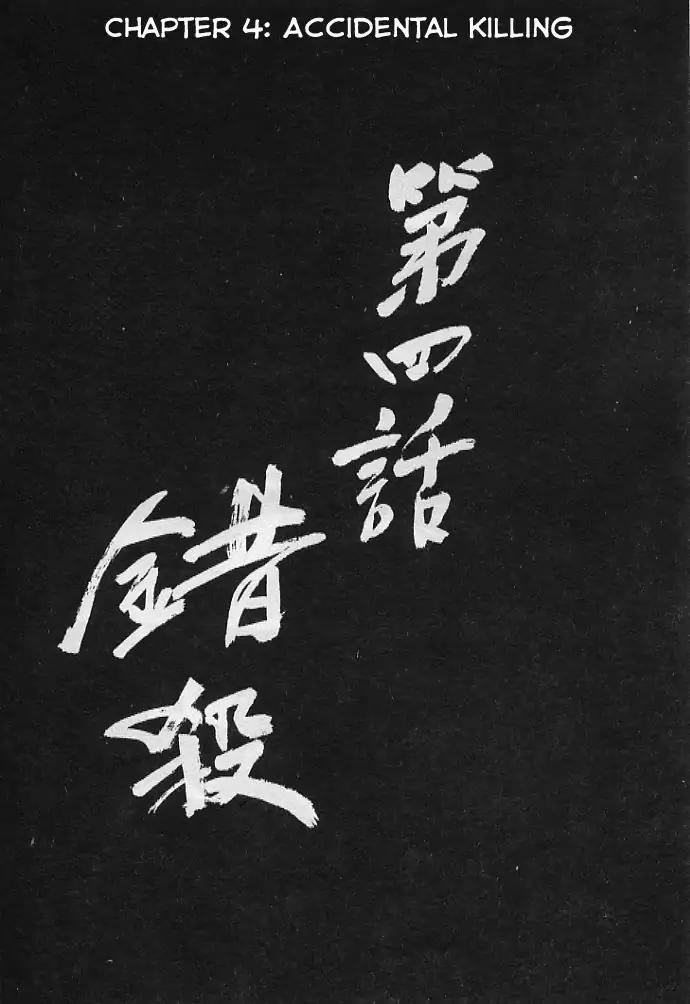 CHAPTER 4: ACCIDENTAL KILLING
第四話
錯殺